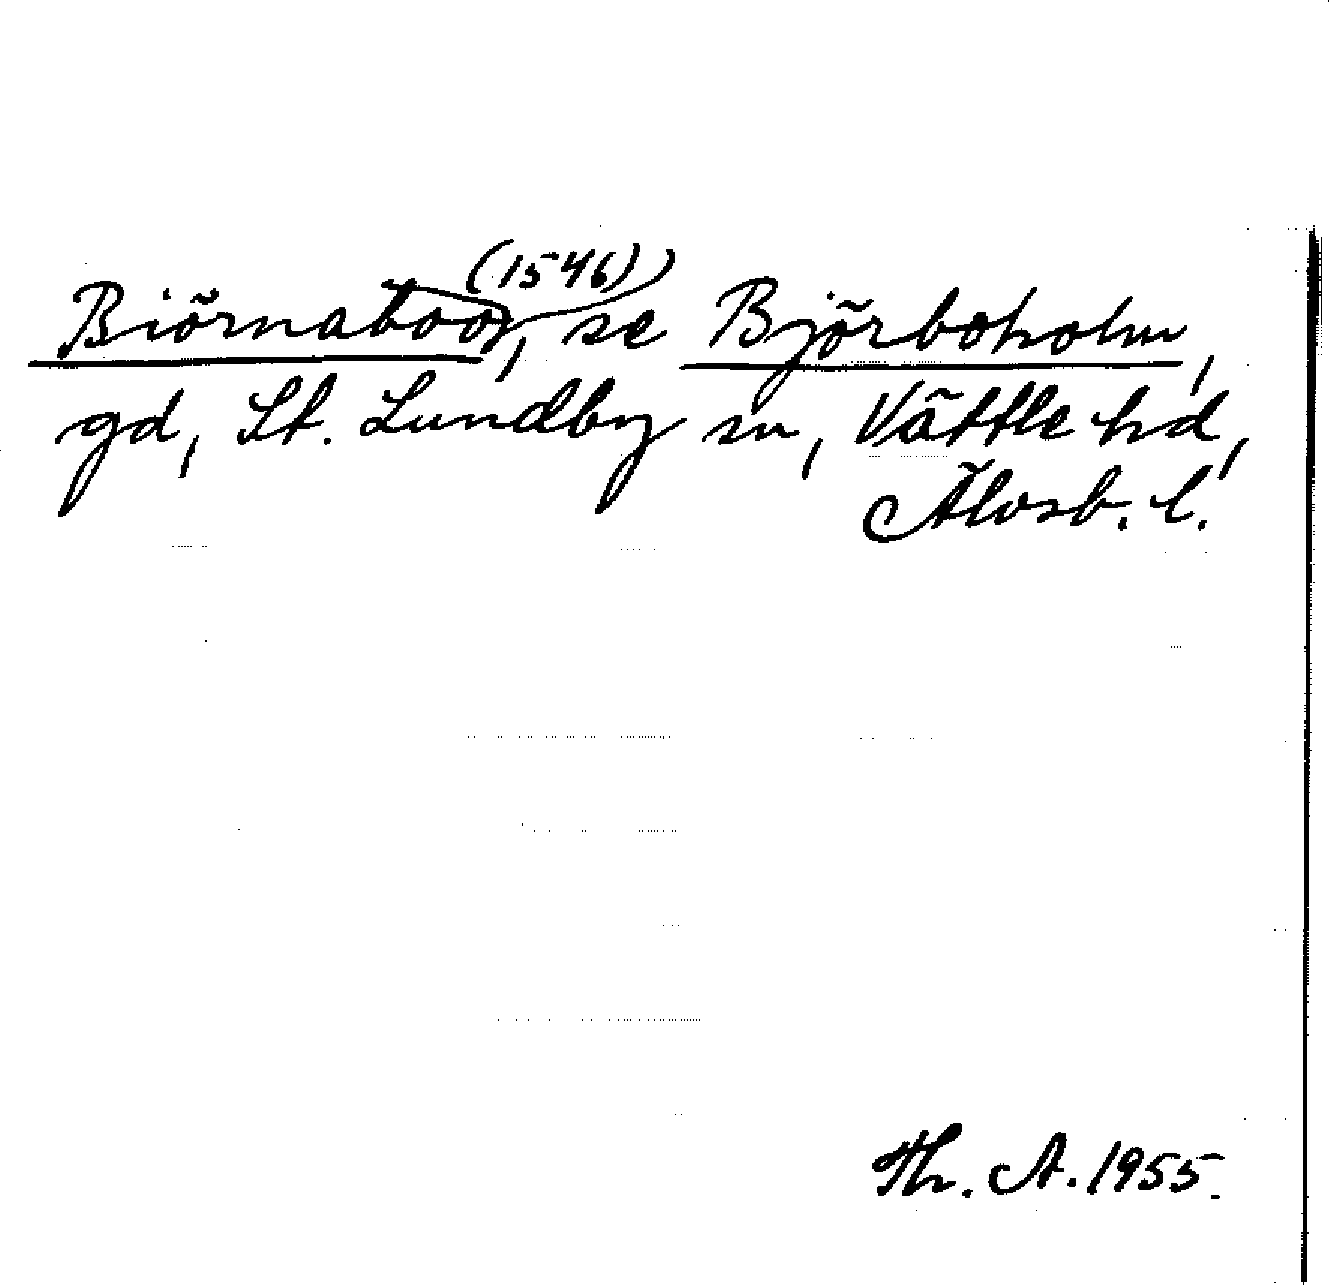 Biörnaboo (1546), se Björboholm,
gd, St. Lundby sn, Vättle hd,
Älvsb. l.
Th. A. 1955.